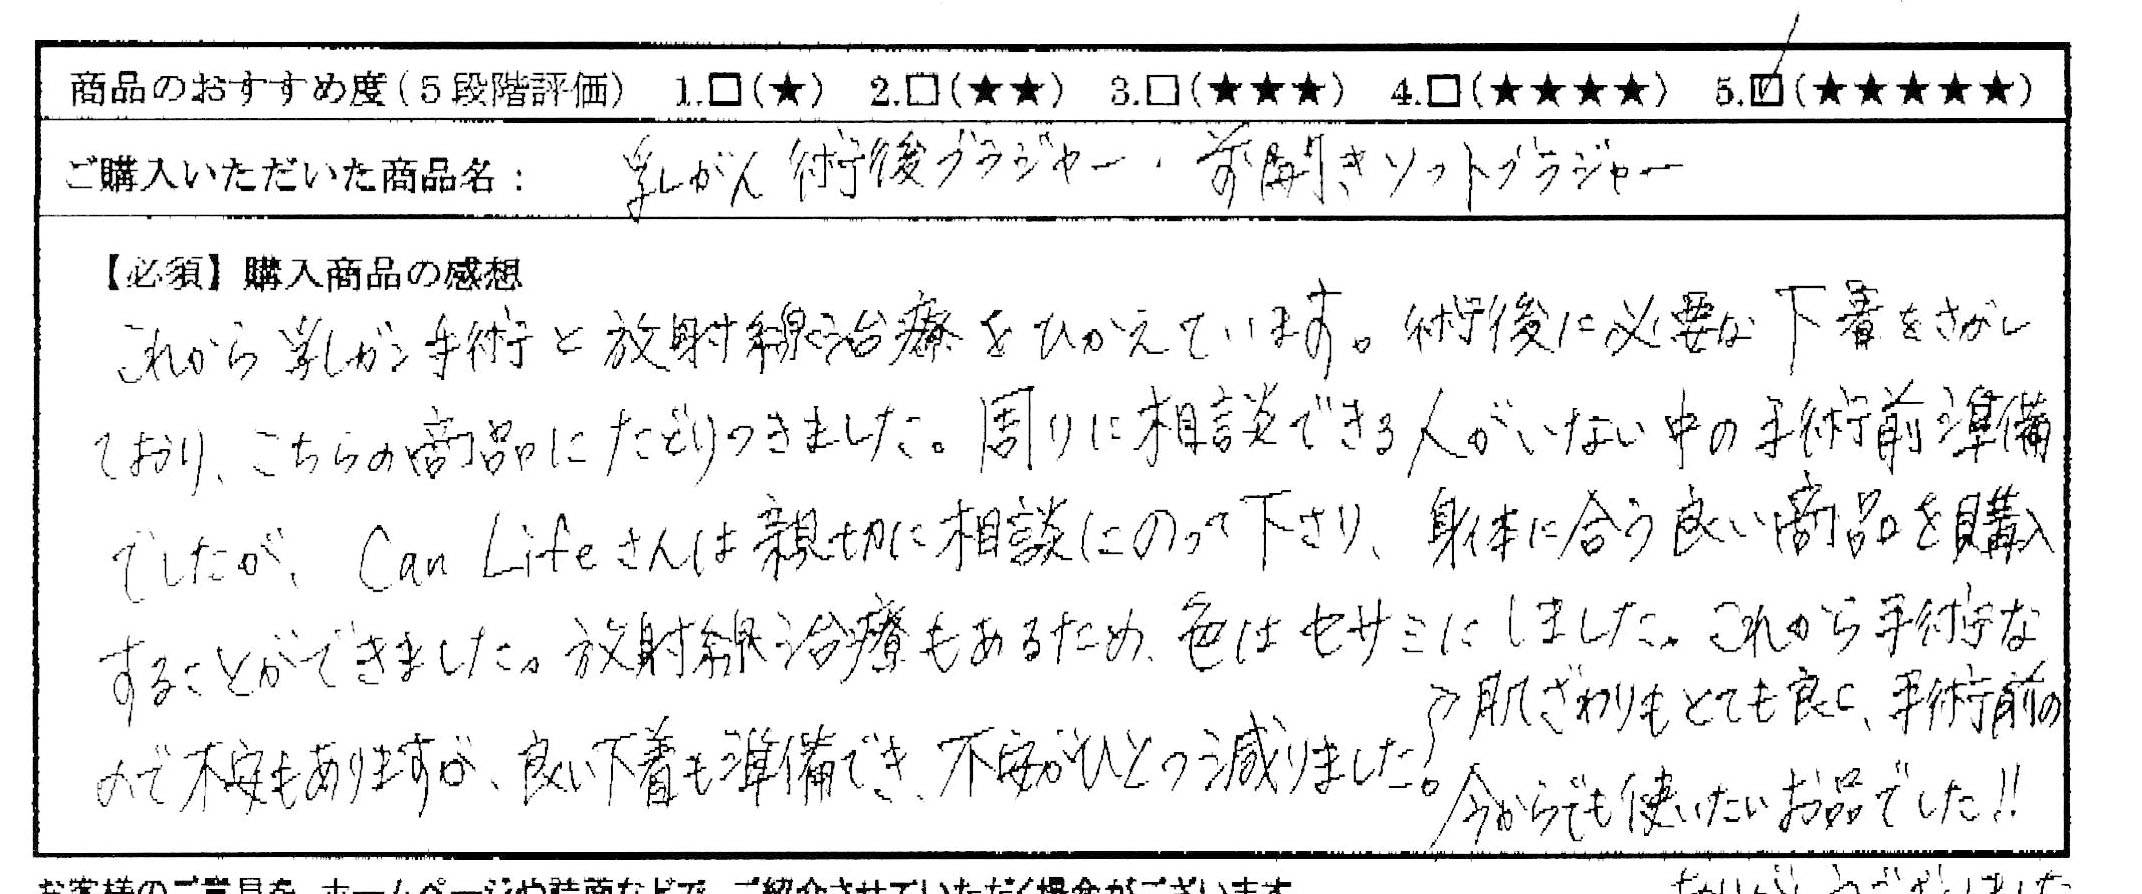 商品のおすすめ度(5段階評価) 1.□(★) 2.□(★★) 3.□(★★★) 4.□(★★★★) 5.☑(★★★★★)
ご購入いただいた商品名: 乳がん 術後ブラジャー・前開きソフトブラジャー
【必須】購入商品の感想
これから乳がん手術と放射線治療をひかえています。術後に必要な下着をさがし
ており、こちらの商品にたどりつきました。周りに相談できる人がいない中の手術前準備
でしたが、Can Lifeさんは親切に相談にのって下さり、身体に合う良い商品を購入
することができました。放射線治療もあるため、色はセサミにしました。これから手術な
ので不安もありますが、良い下着も準備でき、不安がひとつ減りました。
肌ざわりもとても良く、手術前の
今からでも使いたいお品でした!!
お客様のご意見を、ホームページや誌面などで、ご紹介させていただく場合がございます
ありがとうございました